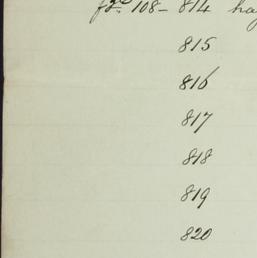 108 - 814
815
816
817
818
819
820